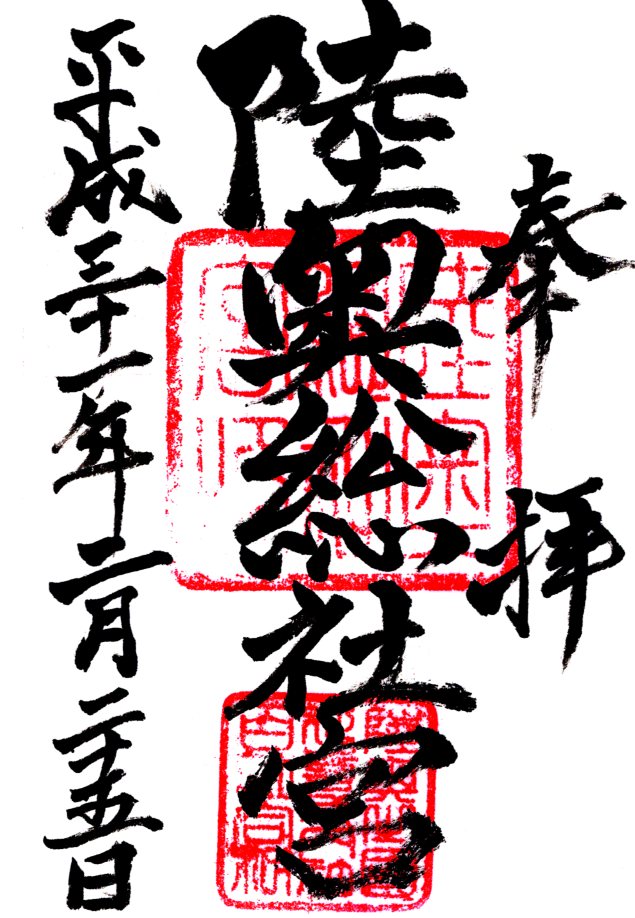 奉拝
陸奥総社宮
平成三十一年二月二十五日